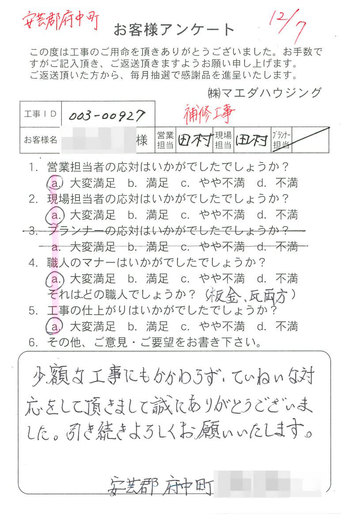 安芸郡府中町
12/7
お客様アンケート
この度は工事のご用命を頂きありがとうございました。お手数で
すがご記入頂き、ご返送頂きますようお願い申し上げます。
ご返送頂いた方から、毎月抽選で感謝品を進呈いたします。
㈱マエダハウジング
補修工事
工事ID 003-00927
お客様名 様 営業担当 田村 現場担当 田村 プランナー担当
1. 営業担当者の応対はいかがでしたでしょうか？
a. 大変満足 b. 満足 c. やや不満 d. 不満
2. 現場担当者の応対はいかがでしたでしょうか？
a. 大変満足 b. 満足 c. やや不満 d. 不満
3. プランナーの応対はいかがでしたでしょうか？
a. 大変満足 b. 満足 c. やや不満 d. 不満
4. 職人のマナーはいかがでしたでしょうか？
a. 大変満足 b. 満足 c. やや不満 d. 不満
それはどの職人でしょうか？ (板金、瓦両方)
5. 工事の仕上がりはいかがでしたでしょうか？
a. 大変満足 b. 満足 c. やや不満 d. 不満
6. その他、ご意見・ご要望をお書き下さい。
少額な工事にもかかわらず、ていねいな対
応をして頂きまして誠にありがとうございま
した。引き続きよろしくお願いいたします。
安芸郡 府中町